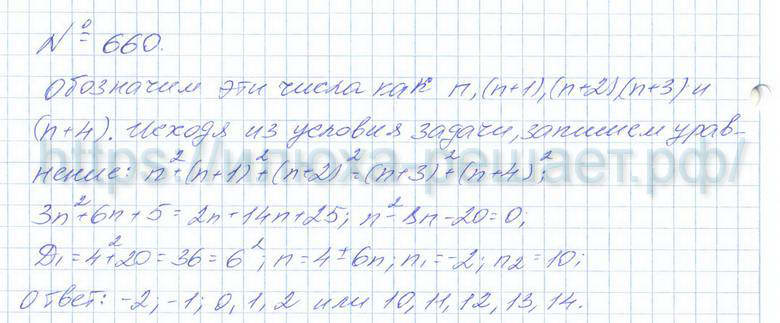 № 660.
Обозначим эти числа как n, (n+1), (n+2), (n+3) и
(n+4). Исходя из условия задачи, запишем урав-
нение: n²+(n+1)²+(n+2)²=(n+3)²+(n+4)²;
3n²+6n+5=2n+14n+25; n²-8n-20=0;
D₁=4²+20=36=6²; n=4±6n; n₁=-2; n₂=10;
Ответ: -2; -1; 0, 1, 2 или 10, 11, 12, 13, 14.
https://июха-решает.рф/